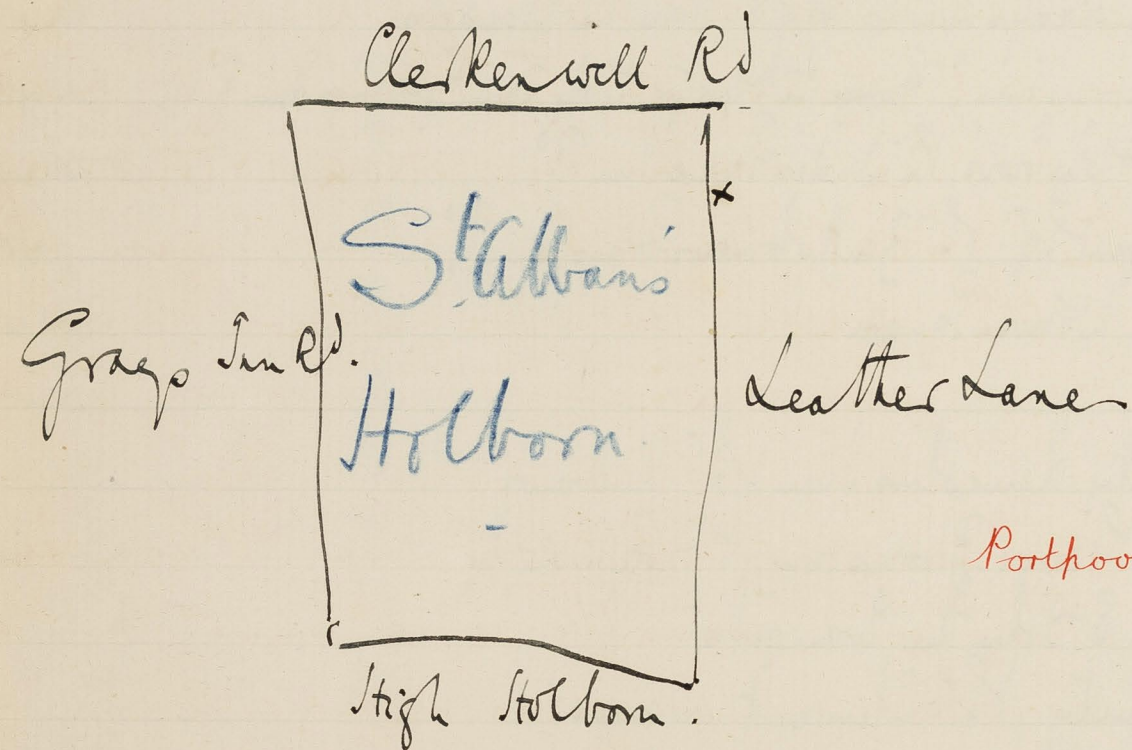 Clerkenwell Rd
x
St. Albans'
Grays Inn Rd.
Holborn
Leather Lane
High Holborn.